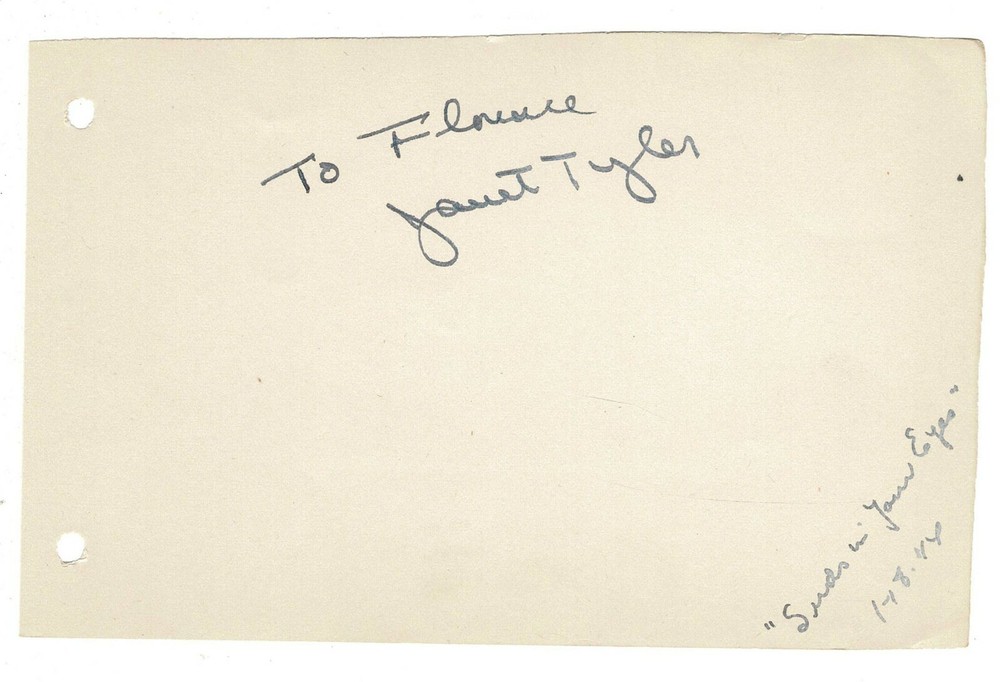 To Florence
Janet Tyler
"Suds in Your Eyes"
1-8-44